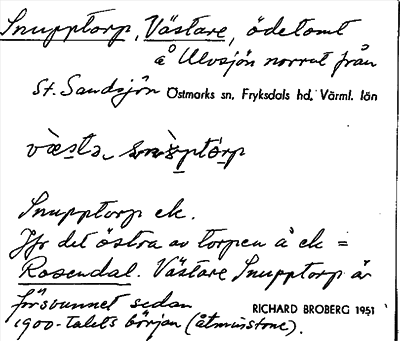 Snupptorp, Västare, ödetomt
å Ulvsjön norrut från
St. Sandsjön Östmarks sn, Fryksdals hd, Värml. län
Snupptorp ek.
Jfr det östra av torpen å ek =
Rosendal. Västare Snupptorp är
försvunnet sedan
1900-talets början (åtminstone).
RICHARD BROBERG 1951